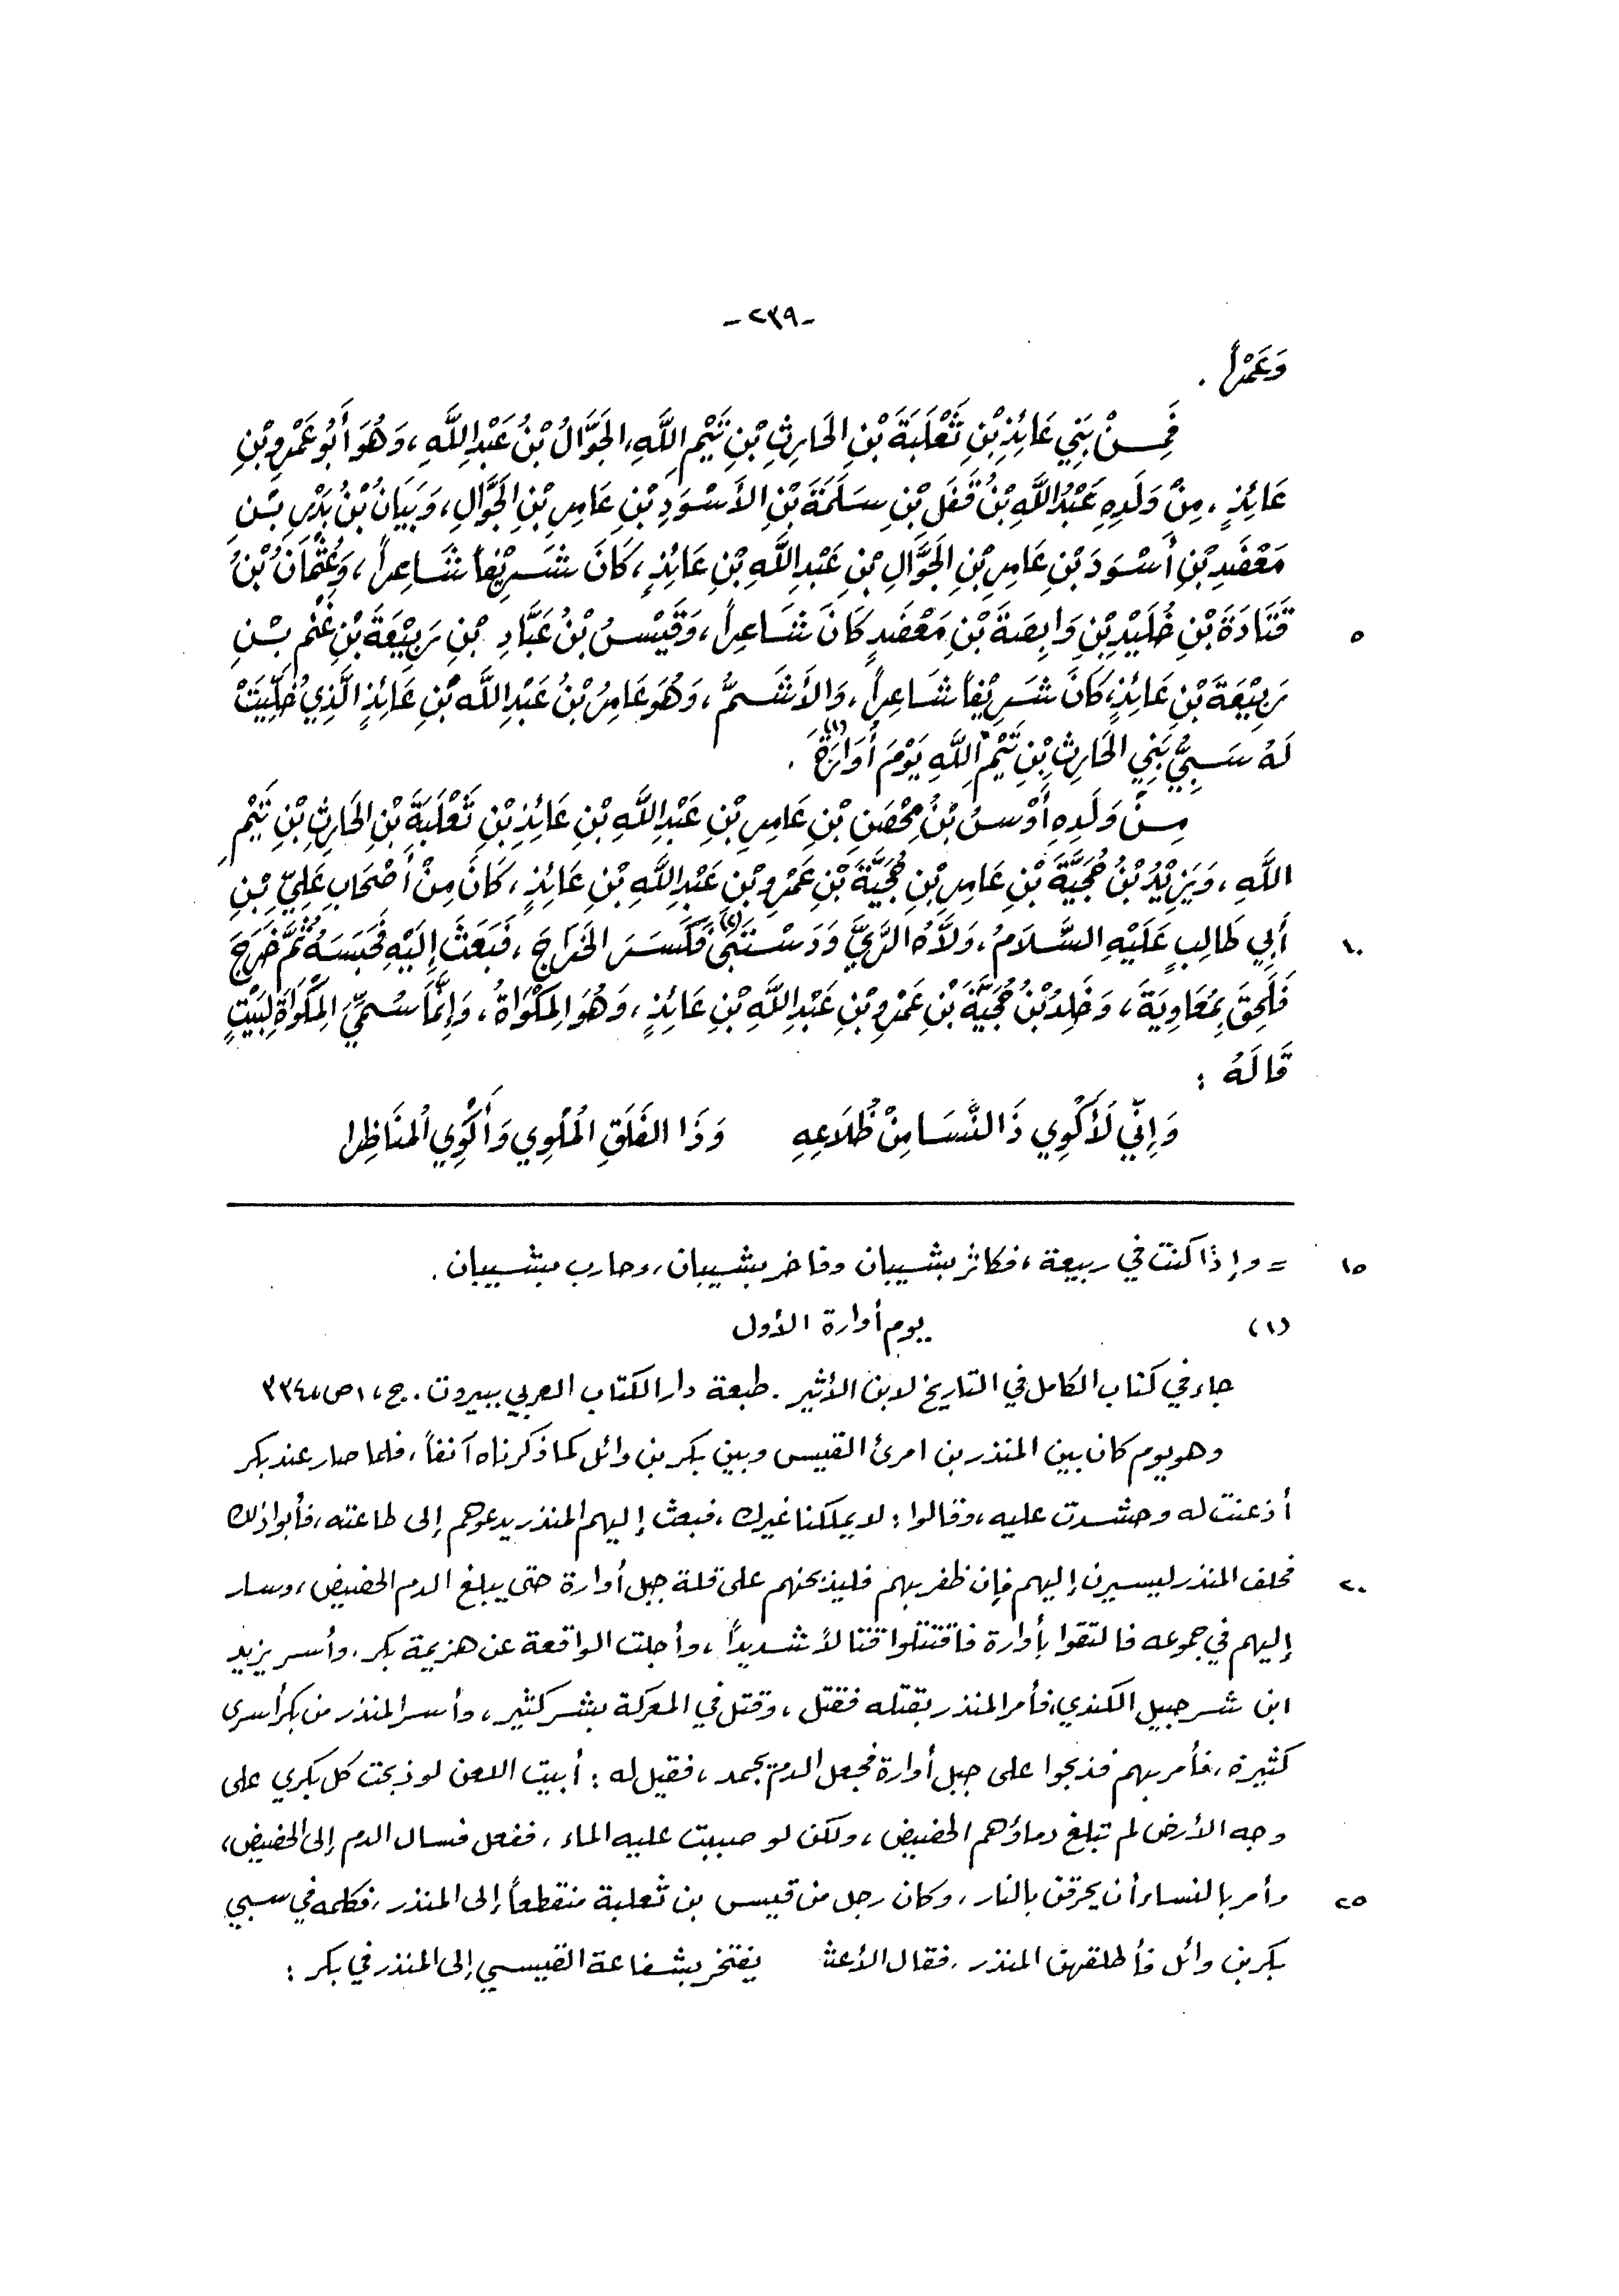 -٢٣٩-
وَعَمْراً .
فَمِنْ بَنِي عَائِذِ بْنِ ثَعْلَبَةَ بْنِ الحَارِثِ بْنِ تَيْمِ اللَّهِ، الجَوَّالُ بْنُ عَبْدِ اللَّهِ ، وَهُوَ أَبُو عَمْرِو بْنِ
عَائِذٍ ، مِنْ وَلَدِهِ عَبْدُ اللَّهِ بْنُ قَفَلِ بْنِ سَلَمَةَ بْنِ الأَسْوَدِ بْنِ عَامِرِ بْنِ الجَوَّالِ ، وَبَيَانُ بْنُ بَدْرِ بْنِ
مَعْضَدِ بْنِ أَسْوَدَ بْنِ عَامِرِ بْنِ الجَوَّالِ بْنِ عَبْدِ اللَّهِ بْنِ عَائِذٍ ، كَانَ شَرِيْفاً شَاعِراً ، وَعُثْمَانُ بْنُ
٥ قَتَادَةَ بْنِ خُلَيْدِ بْنِ وَابِصَةَ بْنِ مَعْضَدٍ كَانَ شَاعِراً ، وَقَيْسُ بْنُ عَبَّادِ بْنِ رَبِيْعَةَ بْنِ غَنْمِ بْنِ
رَبِيْعَةَ بْنِ عَائِذٍ ، كَانَ شَرِيْفاً شَاعِراً ، وَالأَشَمُّ ، وَهُوَ عَامِرُ بْنُ عَبْدِ اللَّهِ بْنِ عَائِذٍ الَّذِي خُلِّيَتْ
لَهُ سَبِيُّ بَنِي الحَارِثِ بْنِ تَيْمِ اللَّهِ يَوْمَ أُوَارَةَ (١) .
مِنْ وَلَدِهِ أَوْسُ بْنُ مِحْصَنِ بْنِ عَامِرِ بْنِ عَبْدِ اللَّهِ بْنِ عَائِذِ بْنِ ثَعْلَبَةَ بْنِ الحَارِثِ بْنِ تَيْمِ
اللَّهِ ، وَيَزِيْدُ بْنُ حُجَيَّةَ بْنِ عَامِرِ بْنِ حُجَيَّةَ بْنِ عَمْرِو بْنِ عَبْدِ اللَّهِ بْنِ عَائِذٍ ، كَانَ مِنْ أَصْحَابِ عَلِيِّ بْنِ
١٠ أَبِي طَالِبٍ عَلَيْهِ السَّلَامُ ، وَلَّاهُ الرَّيَّ وَدَسْتَبَى (٢) فَكَسَرَ الخَرَاجَ ، فَبَعَثَ إِلَيْهِ فَحَبَسَهُ ثُمَّ خَرَجَ
فَلَحِقَ بِمُعَاوِيَةَ ، وَخَالِدُ بْنُ حُجَيَّةَ بْنِ عَمْرِو بْنِ عَبْدِ اللَّهِ بْنِ عَائِذٍ ، وَهُوَ المِكْوَاةُ ، وَإِنَّمَا سُمِّيَ المِكْوَاةَ لِبَيْتٍ
قَالَهُ :
وَإِنِّي لَأَكْوِي ذَا النَّسَا مِنْ ظُلَاعِهِ وَذَا الغَلَقِ المُلْوِي وَأَكْوِي المنَاظِرا
١٥ = وإذا كنت في ربيعة ، فكاثر بشيبان وفاخر بشيبان ، وحارب بشيبان .
(١) يوم أوارة الأول
جاء في كتاب الكامل في التاريخ لابن الأثير . طبعة دار الكتاب العربي ببيروت . ج ، ١ ص ، ٣٣٤
وهو يوم كان بين المنذر بن امرئ القيس وبين بكر بن وائل كما ذكرناه آنفاً ، فلما صار عند بكر
أذعنت له وحشدت عليه ، وقالوا : لا يملكنا غيرك ، فبعث إليهم المنذر يدعوهم إلى طاعته ، فأبوا ذلك
٢٠ فحلف المنذر ليسيرن إليهم فإن ظفر بهم فليذبحنهم على قلة جبل أوارة حتى يبلغ الدم الحضيض ، وسار
إليهم في جموعه فالتقوا بأوارة فاقتتلوا قتالاً شديداً ، وأجلت الواقعة عن هزيمة بكر ، وأسر يزيد
ابن شرحبيل الكندي ، فأمر المنذر بقتله فقتل ، وقتل في المعركة بشر كثير ، وأسر المنذر من بكر أسرى
كثيرة ، فأمر بهم فذبحوا على جبل أوارة فجعل الدم يجمد ، فقيل له : أبيت اللعن لو ذبحت كل بكري على
وجه الأرض لم تبلغ دماؤهم الحضيض ، ولكن لو صببت عليه الماء ، ففعل فسال الدم إلى الحضيض ،
٢٥ وأمر بالنساء أن يحرقن بالنار ، وكان رجل من قيس بن ثعلبة منقطعاً إلى المنذر ، فكلمه في سبي
بكر بن وائل فأطلقهن المنذر ، فقال الأعش يفتخر بشفاعة القيسي إلى المنذر في بكر :